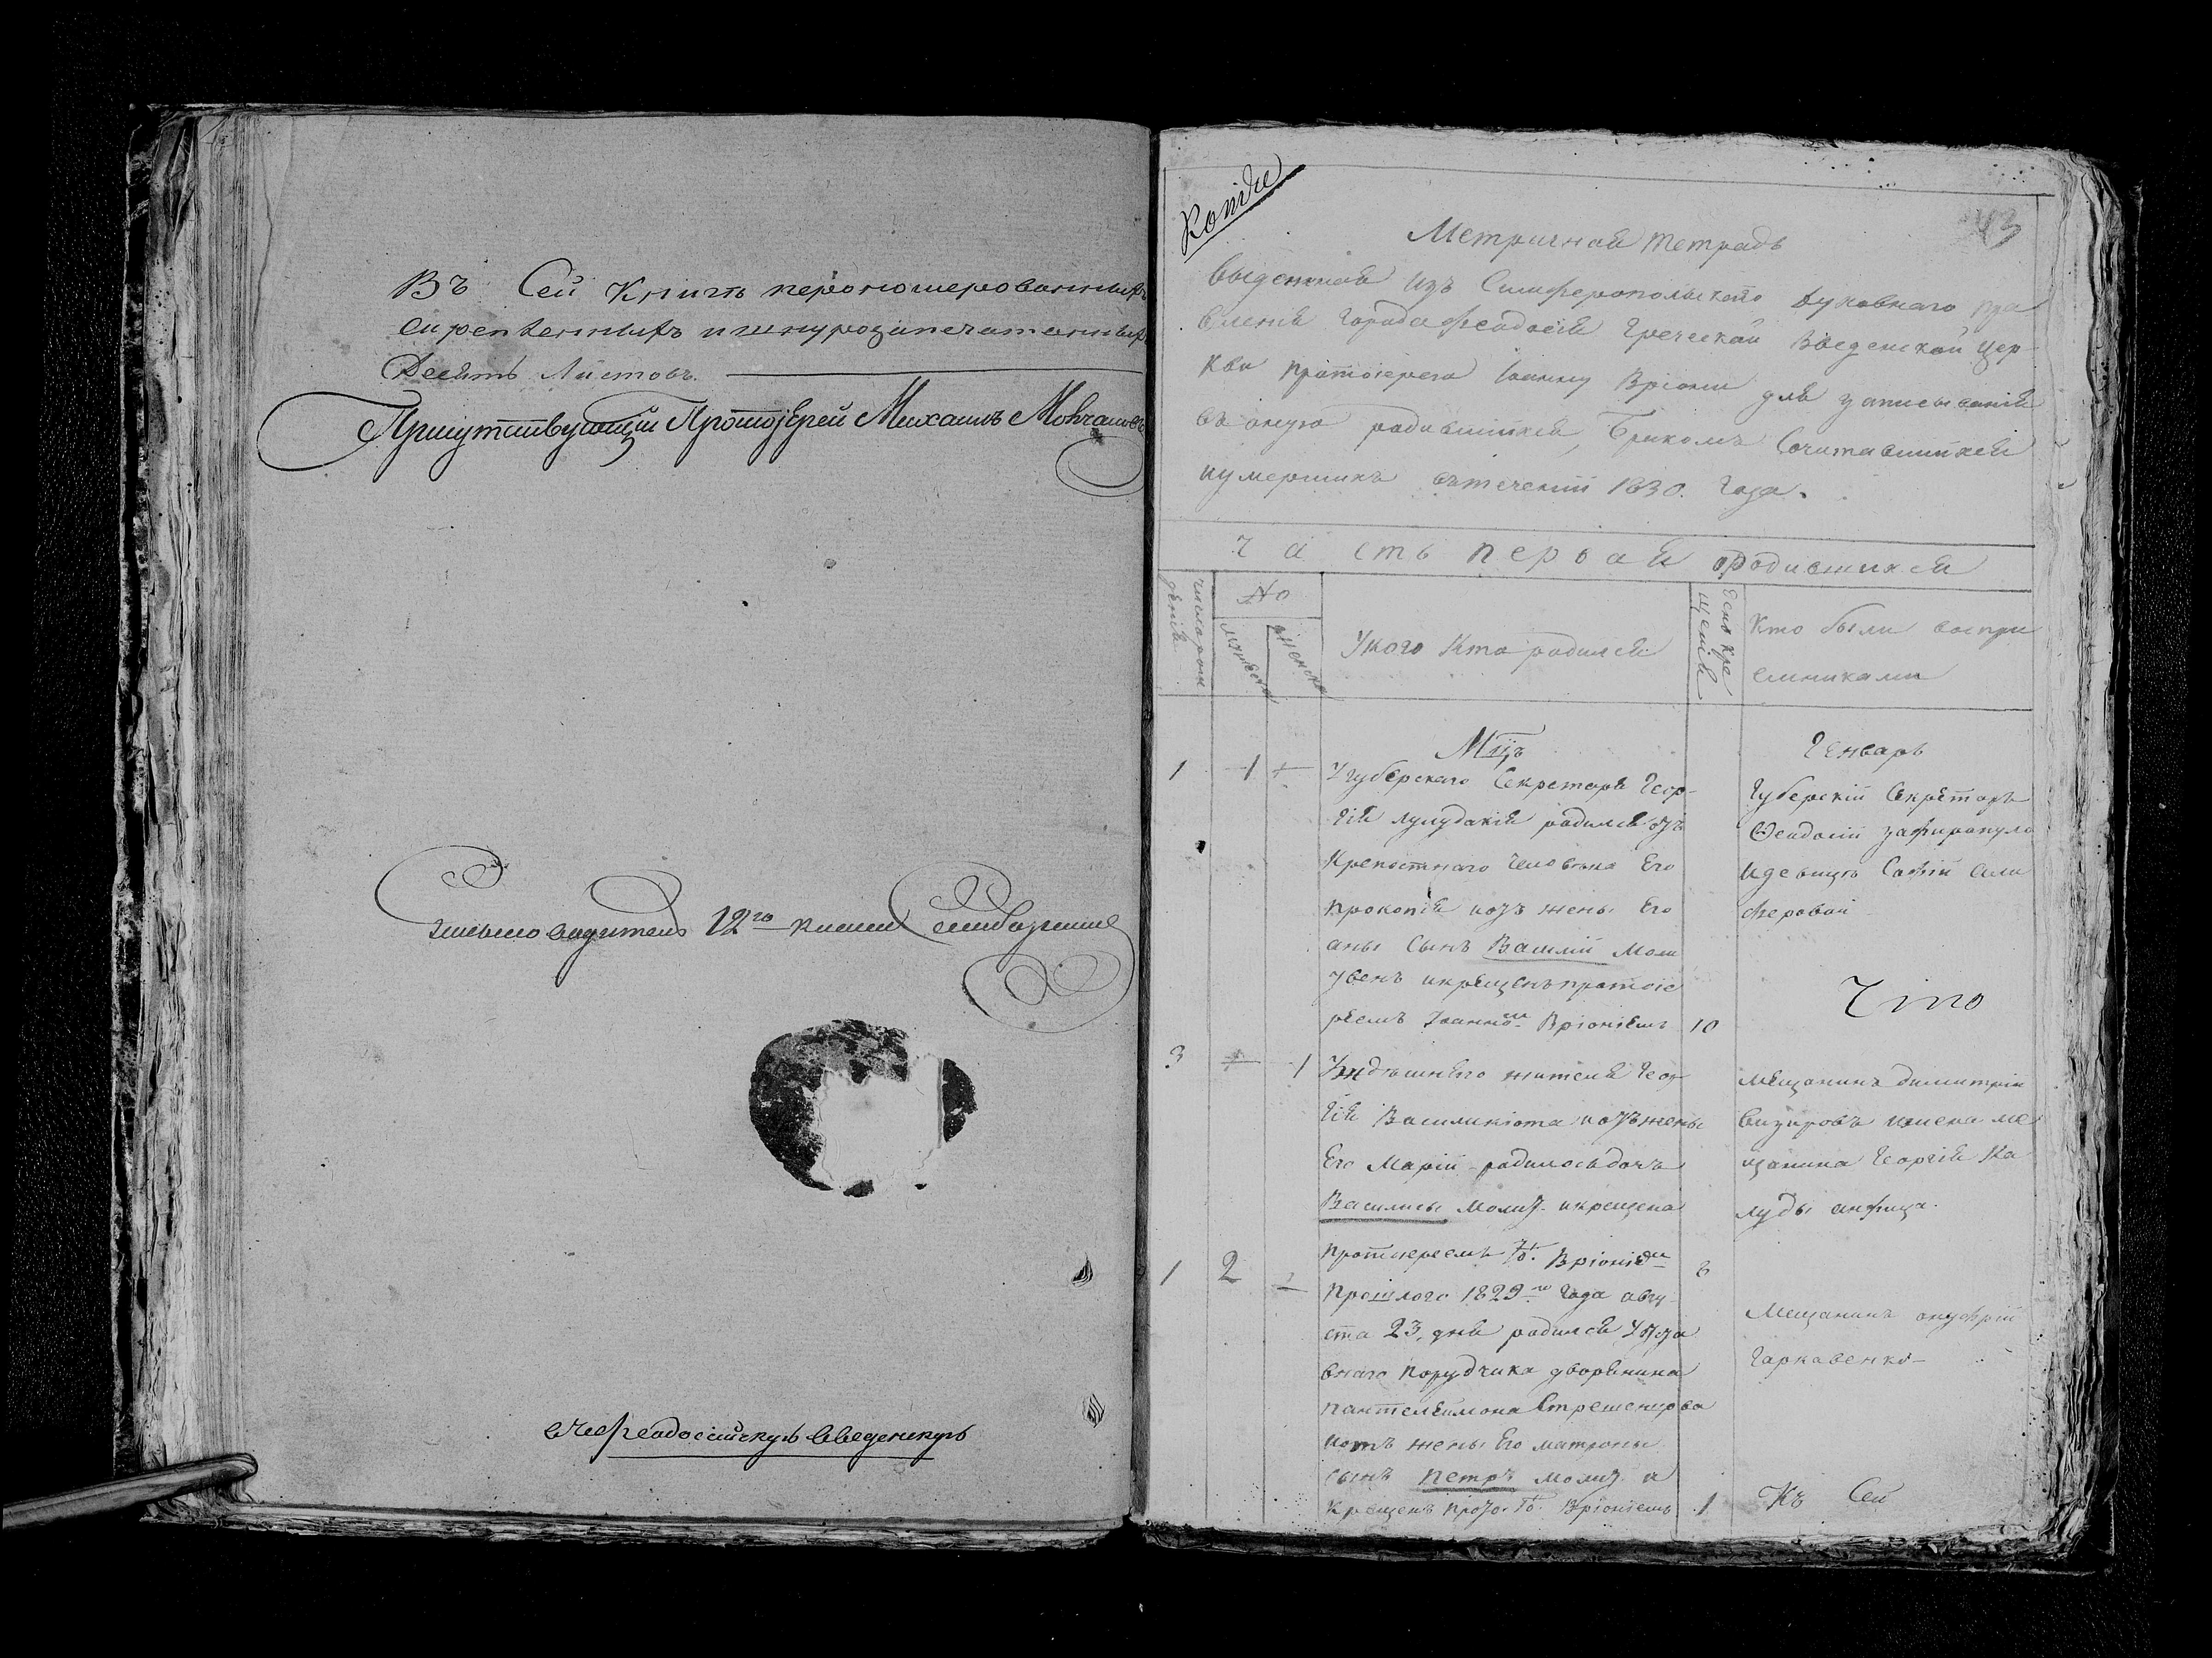 Въ Сей Книгѣ перономерованныхъ
скрепленныхъ ишнурозапечатанныхъ
Десять Листовъ.
Присутствующій Протоіерей Михаилъ
12го класса
Введенскую
Копія
43
Метричная тетрадь
выденная Изъ Симферопольскаго духовнаго пра
вленія города феодосіи Греческой Введенской Цер-
кви протоіерею Іоанну Вріони для записыванія
въ оную родившихся, Бракомъ Сочитавшихся
иумершихъ втеченіи 1830. Года.
часть первая о родившихся
число рож
денія
No
мужеска
женска
Укого Кто родился
Когда кре
щенія
Кто были воспри
емниками
Мцъ
Генварь
1 1 +
Угуберскаго Секретаря Геор-
гія лулудакія родился отъ
Крепостнаго человѣка Его
прокопія иотъ жены Его
аны Сынъ Василій Моли
твенъ икрещенъ протоіе
реемъ Іоанномъ Вріоніемъ 10
Губерскій Секретарь
Ѳеодосій зафиропуло
Идевица Софія Али
феровой
Число
3 + 1
Уздѣшнего жителя Геор
гія Василикіота иотъ жены
Его Маріи родилась дочь
Василисы молит. икрещена
протоіереемъ Іо. Вріоніемъ 6
мещанинъ димитрій
ижена ме
щанина Георгія Ка
луды анфица.
1 2 +
Прошлого 1829го Года авгу-
ста 23, дня родился Уотста
внаго Порудчика дворянина
пантелеимона
иотъ жены Его матроны
сынъ Петръ молит. и
Крещенъ прото. Іо. Вріоніемъ 1
Мещанинъ онуфрій
Гаркавенко-
Къ Сей